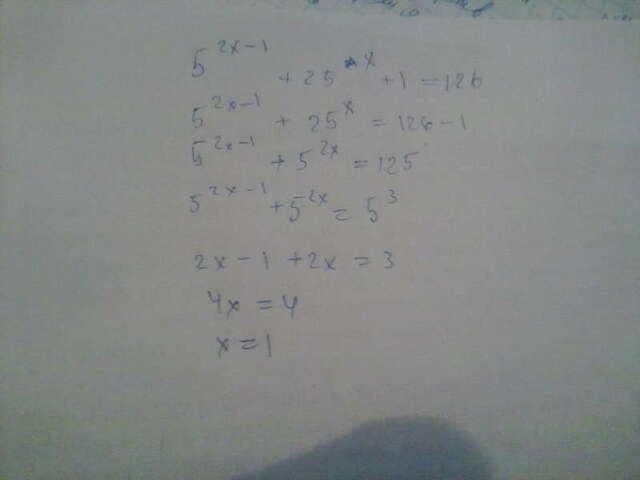 5^{2x-1} + 25^x + 1 = 126
5^{2x-1} + 25^x = 126 - 1
5^{2x-1} + 5^{2x} = 125
5^{2x-1} + 5^{2x} = 5^3
2x - 1 + 2x = 3
4x = 4
x = 1